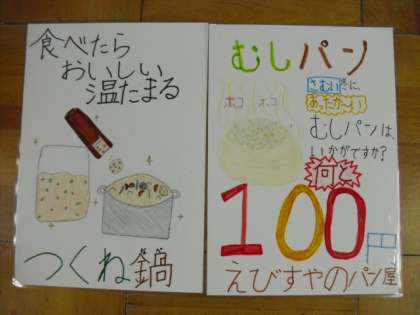 食べたら
おいしい
温たまる
つくね鍋
むしパン
さむい冬に、
あったか〜い
ホコ ホコ
むしパンは、
いかがですか?
何と
100円
えびすやのパン屋